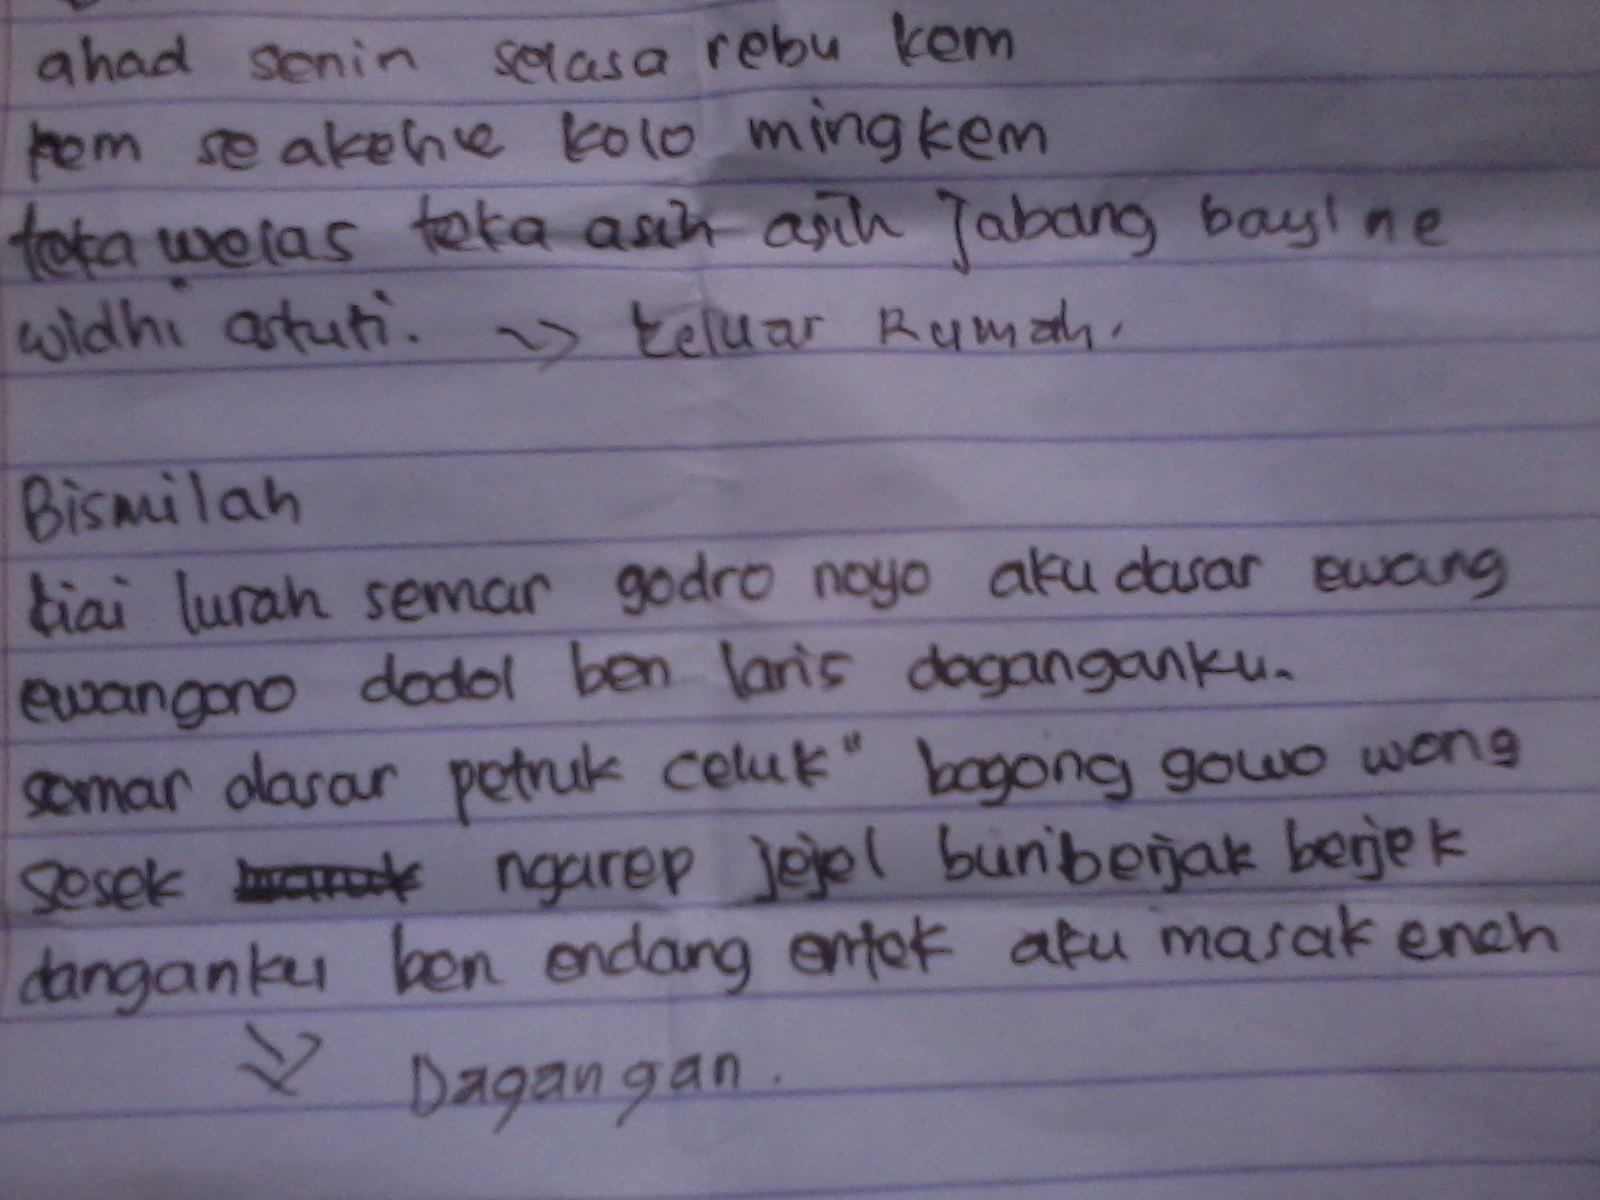 ahad senin selasa rebu kem
kem se akehe kolo mingkem
teka welas teka asih asih Jabang bayi ne
widhi astuti. => keluar Rumah.
Bismilah
kiai lurah semar godro noyo aku dasar ewang
ewangono dodol ben laris daganganku.
semar dasar petruk celuk" bagong gowo wong
sesek ngarep jejel buri berjak berjek
danganku ben endang entek aku masak eneh
=> Dagangan.